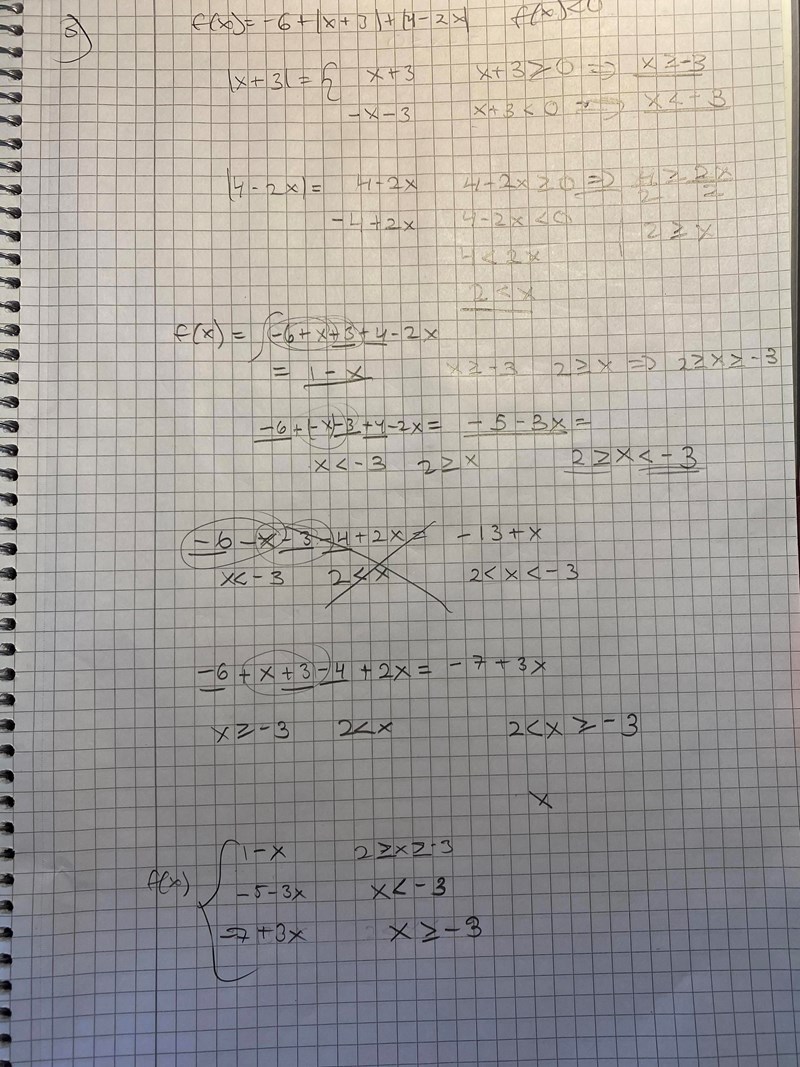 3) f(x) = -6 + |x+3| + |4-2x| f(x)<0
|x+3| = { x+3 x+3 ≥ 0 => x ≥ -3
-x-3 x+3 < 0 => x < -3
|4-2x| = 4-2x 4-2x ≥ 0 => 4/2 ≥ 2x/2
-4+2x 4-2x < 0 2 ≥ x
4 < 2x
2 < x
f(x) = { -6+x+3+4-2x
= 1-x x ≥ -3 2 ≥ x => 2 ≥ x ≥ -3
-6+(-x)-3+4-2x = -5-3x =
x < -3 2 ≥ x 2 ≥ x < -3
-6-x-3-4+2x = -13+x
x < -3 2 < x 2 < x < -3
-6+x+3-4+2x = -7+3x
x ≥ -3 2 < x 2 < x ≥ -3
x
f(x) { 1-x 2 ≥ x ≥ -3
-5-3x x < -3
-7+3x x ≥ -3